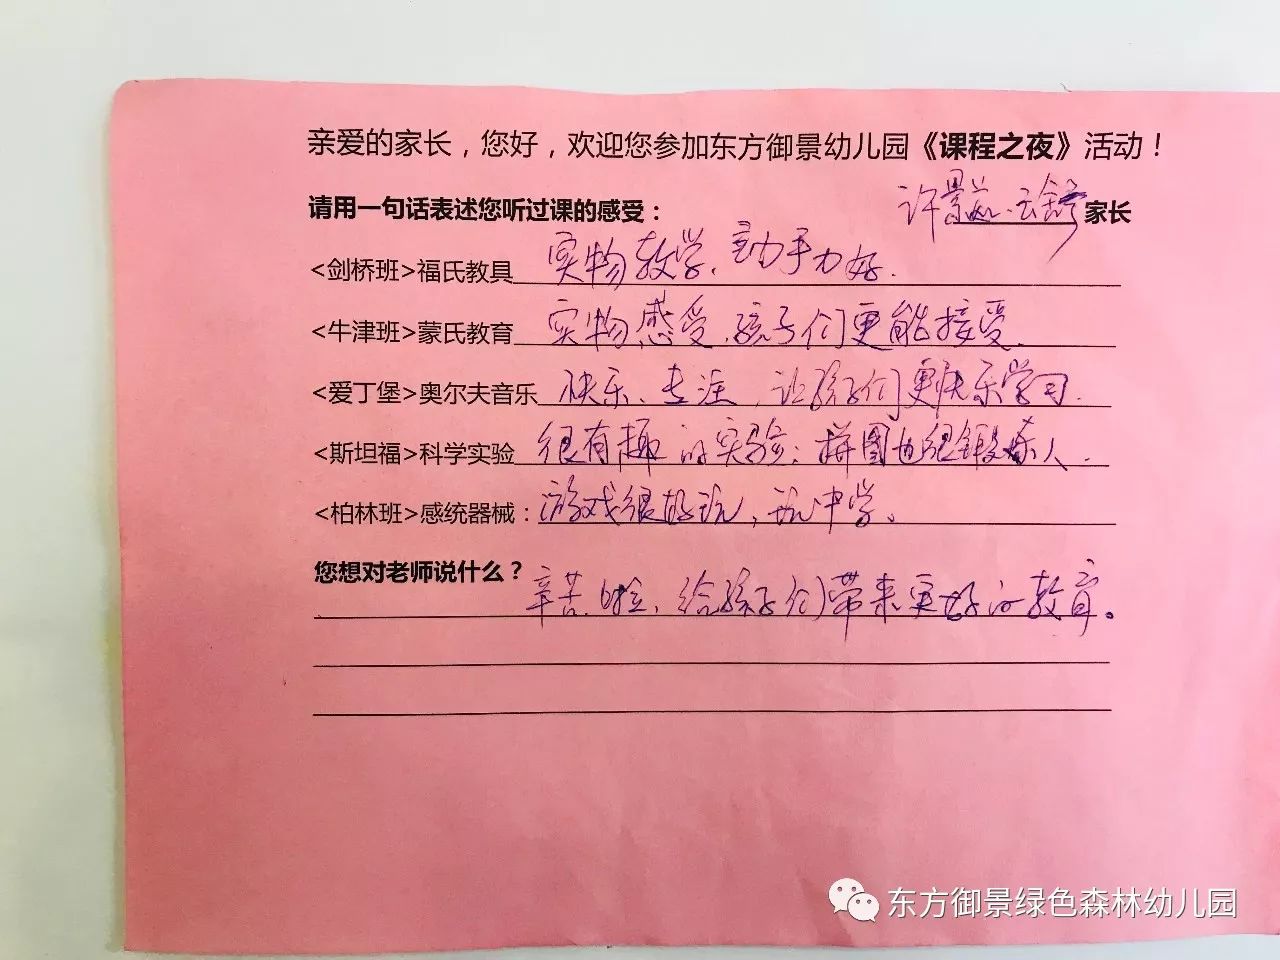 亲爱的家长，您好，欢迎您参加东方御景幼儿园《课程之夜》活动！
请用一句话表述您听过课的感受： 许景茹、云舒 家长
<剑桥班>福氏教具 实物教学、动手力好.
<牛津班>蒙氏教育 实物感受,孩子们更能接受.
<爱丁堡>奥尔夫音乐 快乐、专注,让孩子们更快乐学习.
<斯坦福>科学实验 很有趣的实验；拼图也很锻炼人.
<柏林班>感统器械：游戏很好玩，玩中学。
您想对老师说什么？
辛苦啦、给孩子们带来更好的教育。
东方御景绿色森林幼儿园